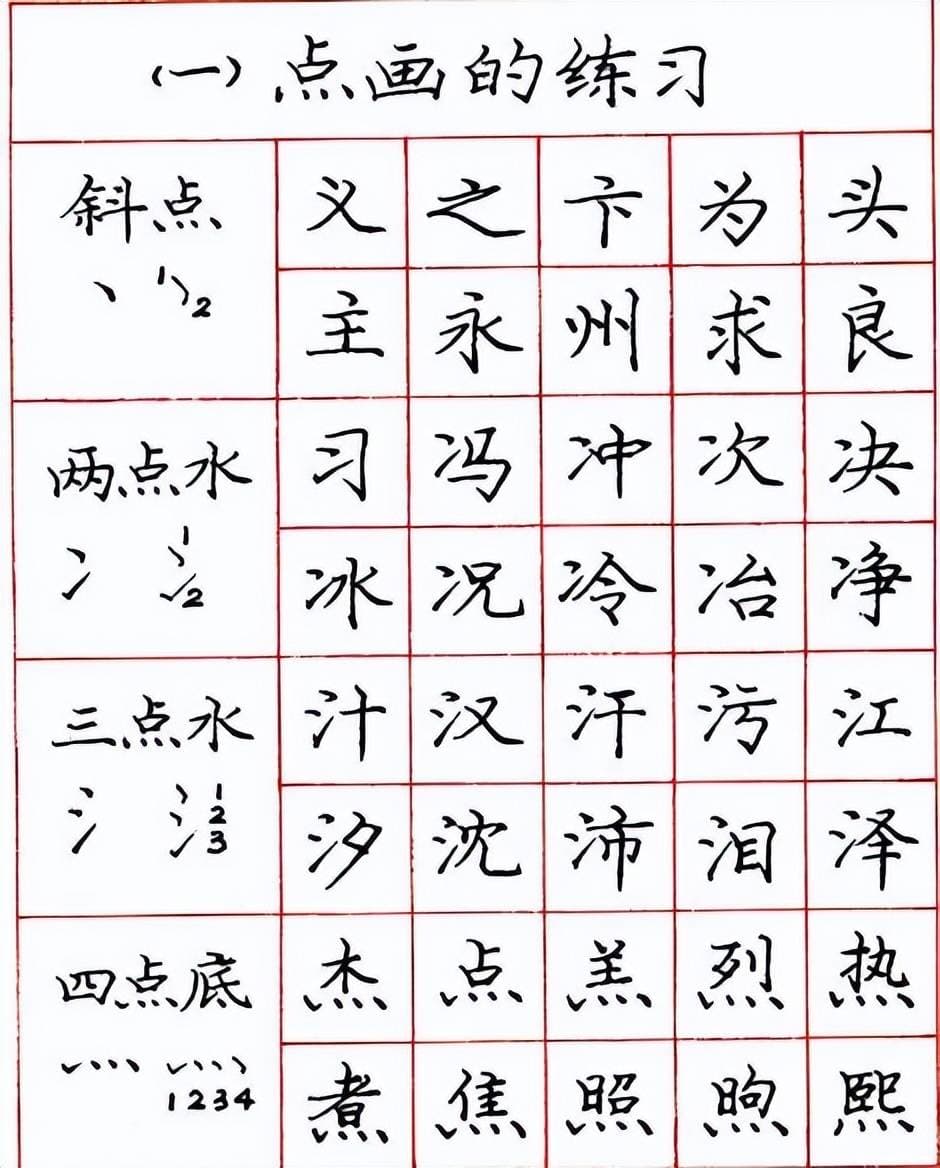 （一）点画的练习
斜点
丶 1 2
义 之 卞 为 头
主 永 州 求 良
两点水
冫 1 2
习 冯 冲 次 决
冰 况 冷 冶 净
三点水
氵 1 2 3
汁 汉 汗 污 江
汐 沈 沛 泪 泽
四点底
灬 1 2 3 4
杰 点 羔 烈 热
煮 焦 照 煦 熙